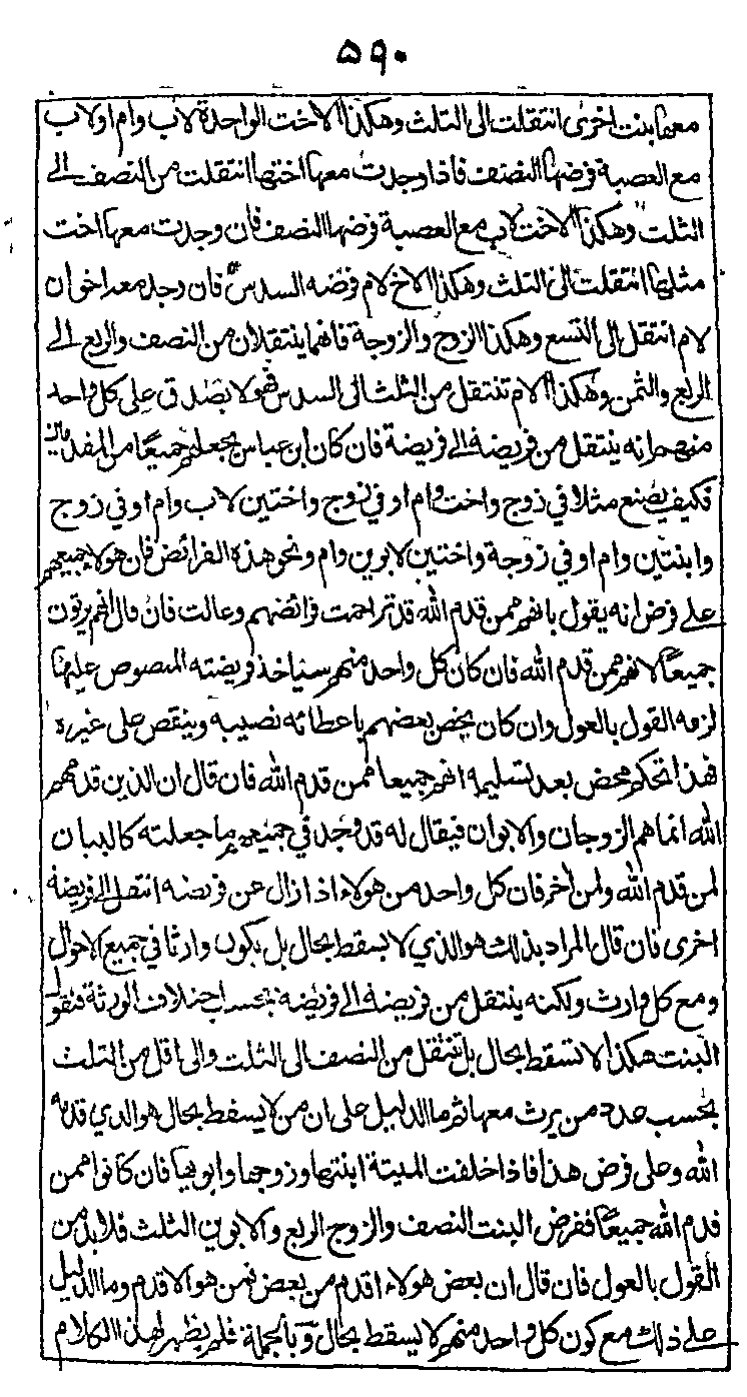 ۵۹۰
معها بنت اخرى انتقلت الى الثلث وهكذا الاخت الواحدة لاب وام او لاب
مع العصبة فرضها النصف فاذا وجدت معها اختها انتقلت من النصف الى
الثلث وهكذا الاخت لاب مع العصبة فرضها النصف فان وجدت معها اخت
مثلها انتقلت الى الثلث وهكذا الاخ لام فرضه السدس فان وجد معه اخوان
لام انتقل الى التسع وهكذا الزوج والزوجة فانهما ينتقلان من النصف والربع الى
الربع والثمن وهكذا الام تنتقل من الثلث الى السدس فهولا يصدق على كل واحد
منهم انه ينتقل من فريضة الى فريضة فان كان ابن عباس يجعلهم جميعًا من المقدمين
فكيف يصنع مثلا في زوج واخت وام او في زوج واختين لاب وام او في زوج
وابنتين وام او في زوجة واختين لابوين وام ونحو هذه الفرائض فان هولا جميعهم
على فرض انه يقول بانهم ممن قدم الله قد تزاحمت فرائضهم وعالت فان قال انهم يرثون
جميعًا لانهم ممن قدم الله فان كان كل واحد منهم سياخذ فريضته المنصوص عليها
لزمه القول بالعول وان كان يخص بعضهم باعطائه نصيبه وينقص على غيره
فهذا تحكم محض بعد تسليمه انهم جميعا ممن قدم الله فان قال ان الذين قدمهم
الله انما هم الزوجان والابوان فيقال له قد وجد في جميعهم ما جعلته كالبيان
لمن قدم الله ولمن اخر فان كل واحد من هولاء اذا زال عن فريضه انتقل الى فريضة
اخرى فان قال المراد بذلك هو الذي لا يسقط بحال بل يكون وارثا في جميع الاحوال
ومع كل وارث ولكنه ينتقل من فريضة الى فريضة بحسب اختلاف الورثة فنقول
البنت هكذا لا تسقط بحال بل تنتقل من النصف الى الثلث والى اقل من الثلث
بحسب عدد من يرث معها ثم ما الدليل على ان من لا يسقط بحال هو الذي قدمه
الله وعلى فرض هذا فاذا خلفت الميتة ابنتها وزوجها وابويها فان كانوا ممن
قدم الله جميعًا ففرض البنت النصف والزوج الربع والابوين الثلث فلا بد من
القول بالعول فان قال ان بعض هولاء اقدم من بعض فمن هو الاقدم وما الدليل
على ذلك مع كون كل واحد منهم لا يسقط بحال وبالجملة فلم يظهر لهذا الكلام